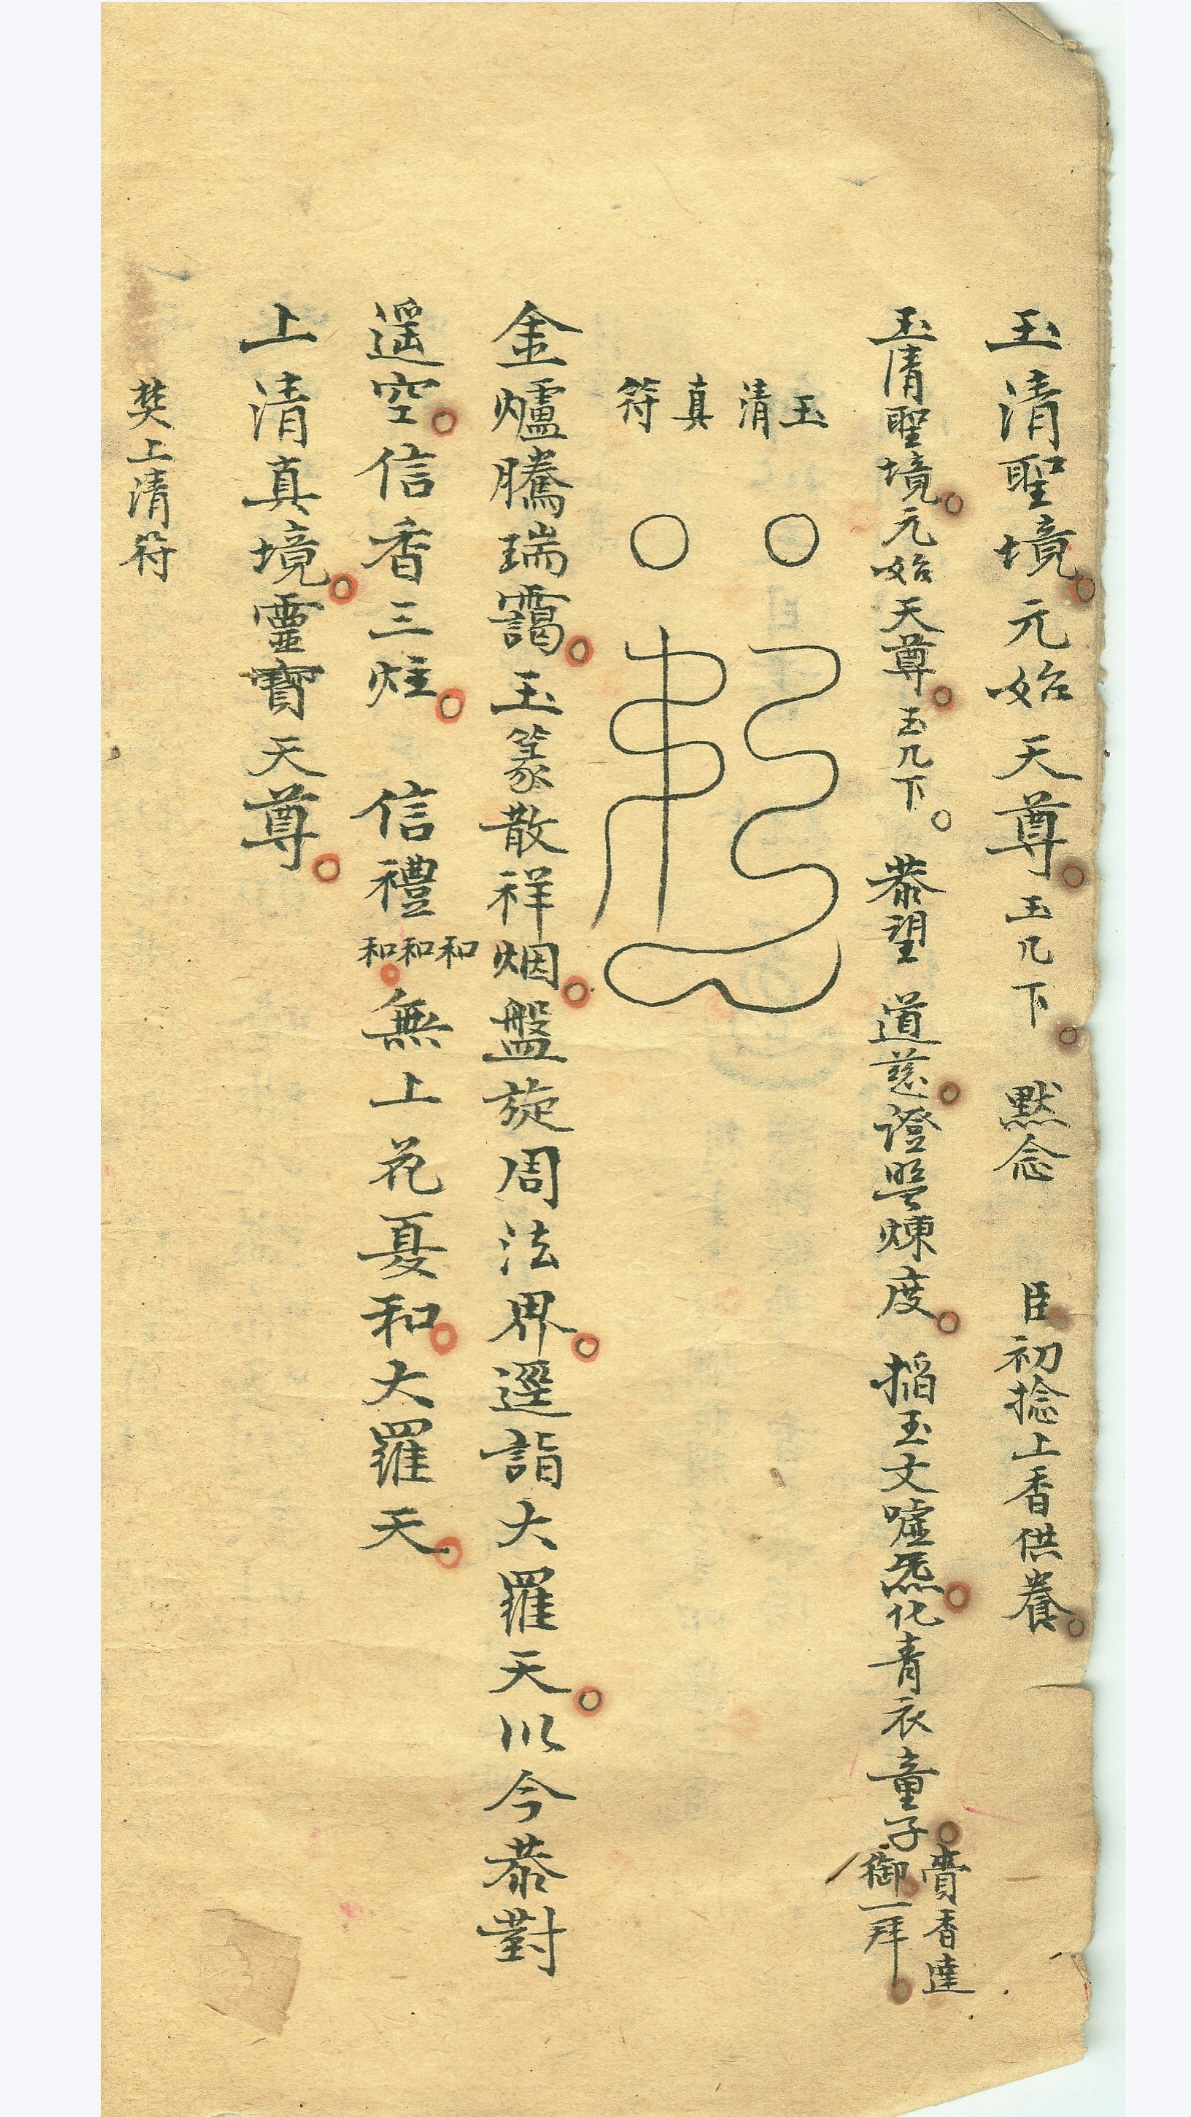 玉清聖境元始天尊玉几下 默念 臣初捻上香供養
玉清聖境元始天尊玉几下 恭望 道慈證盟煉度 掐玉文噓炁化青衣童子賫香達御一拜
玉清真符
金爐騰瑞靄玉篆散祥烟盤旋周法界逕詣大羅天以今恭對
遥空信香三炷 信禮和和和無上花夏和大羅天
上清真境靈寶天尊
焚上清符